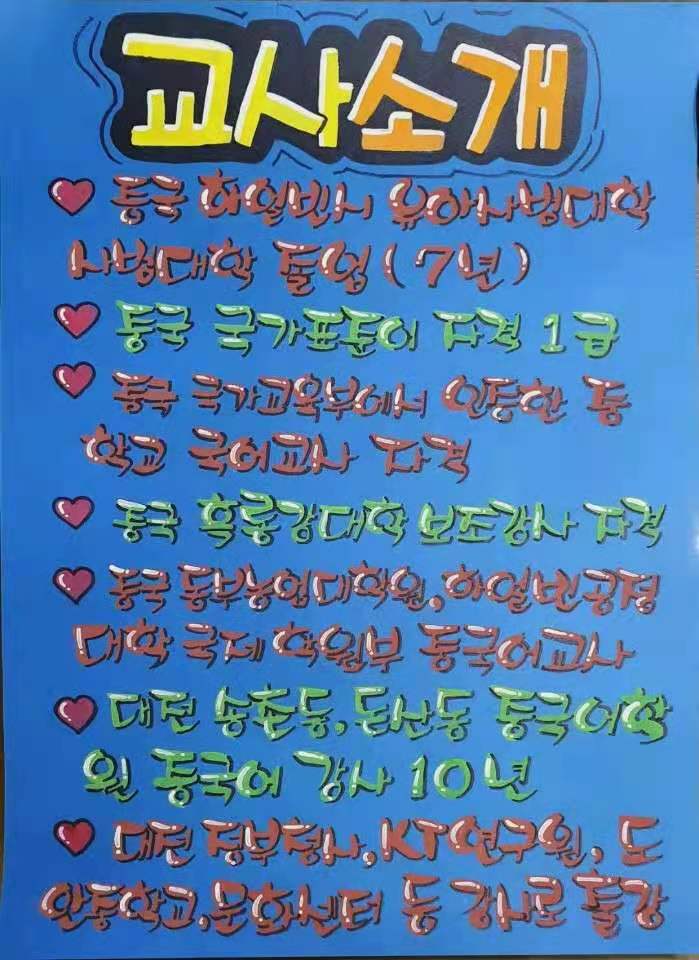 교사소개
중국 하얼빈시 유아사범대학
사범대학 졸업 (7년)
중국 국가표준어 자격 1급
중국 국가교육부에서 인증한 중
학교 국어교사 자격
중국 흑룡강대학 보조강사 자격
중국 동부농업대학원, 하얼빈공정
대학 국제 학원부 중국어교사
대전 송촌동, 둔산동 중국어학
원 중국어 강사 10년
대전 정부청사, KT연구원, 도
안중학교, 문화센터 등 강사로 출강